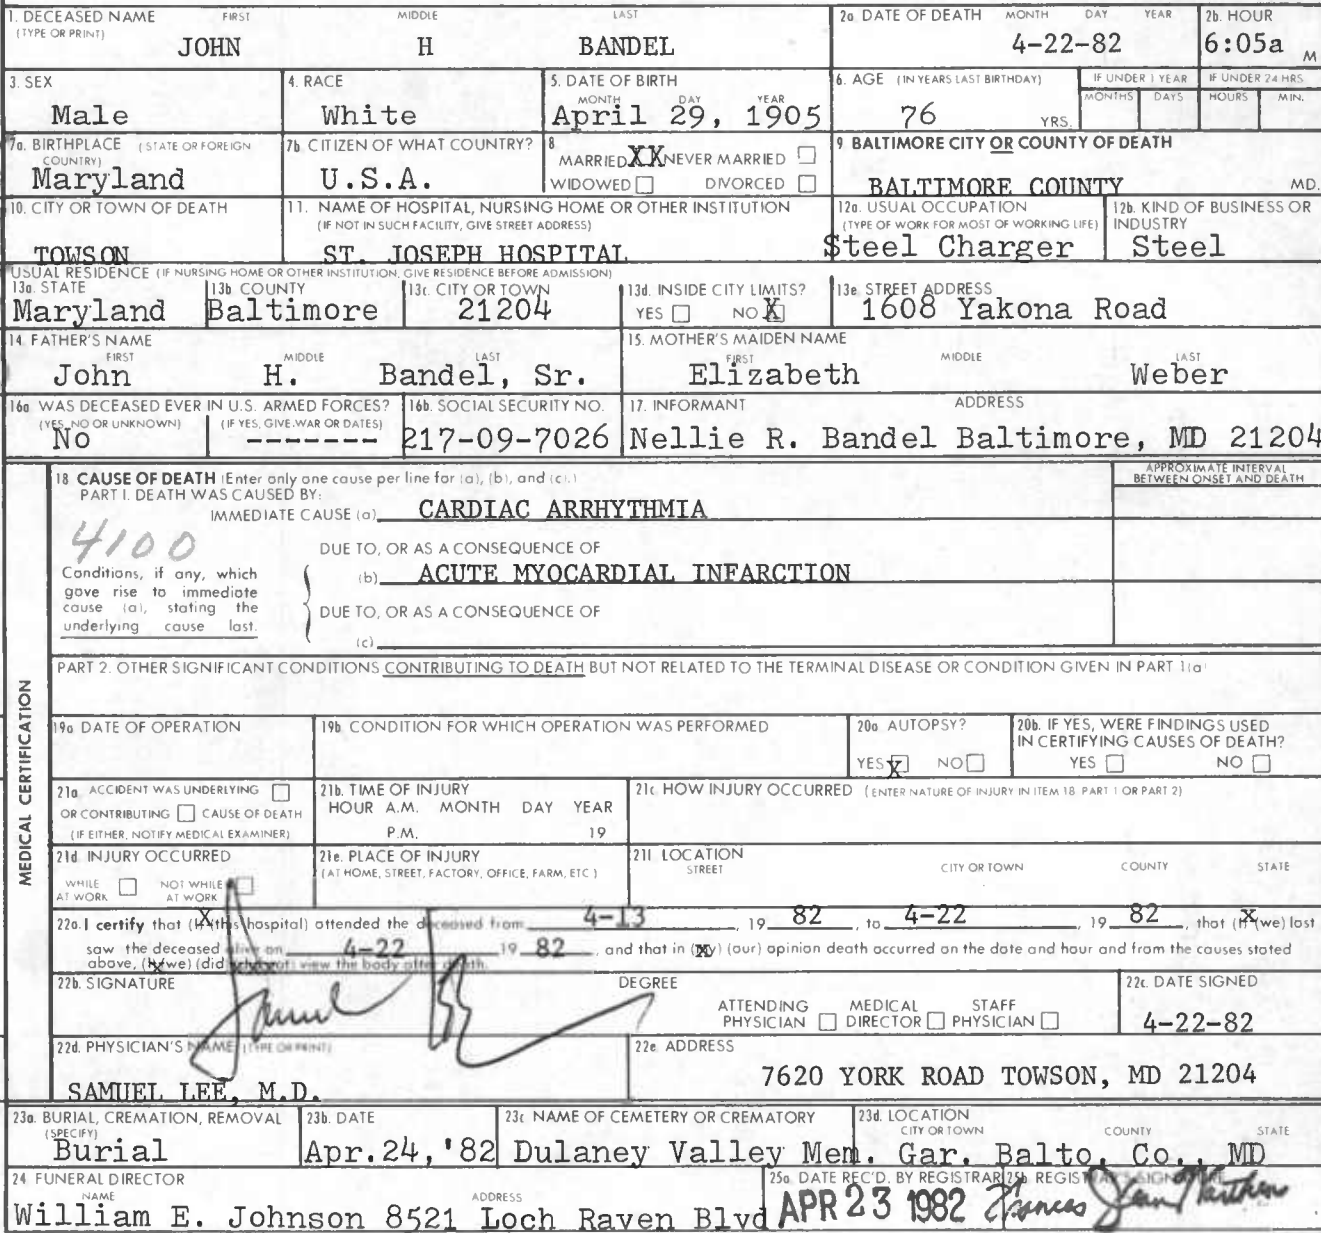 1. DECEASED NAME FIRST MIDDLE LAST
(TYPE OR PRINT)
JOHN H BANDEL
2a. DATE OF DEATH MONTH DAY YEAR
4-22-82
2b. HOUR
6:05a M
3. SEX
Male
4. RACE
White
5. DATE OF BIRTH
MONTH DAY YEAR
April 29, 1905
6. AGE (IN YEARS LAST BIRTHDAY)
76 YRS.
IF UNDER 1 YEAR
MONTHS DAYS
IF UNDER 24 HRS
HOURS MIN.
7a. BIRTHPLACE (STATE OR FOREIGN
COUNTRY)
Maryland
7b. CITIZEN OF WHAT COUNTRY?
U.S.A.
8
MARRIED XX NEVER MARRIED
WIDOWED DIVORCED
9 BALTIMORE CITY OR COUNTY OF DEATH
BALTIMORE COUNTY MD.
10. CITY OR TOWN OF DEATH
TOWSON
11. NAME OF HOSPITAL, NURSING HOME OR OTHER INSTITUTION
(IF NOT IN SUCH FACILITY, GIVE STREET ADDRESS)
ST. JOSEPH HOSPITAL
12a. USUAL OCCUPATION
(TYPE OF WORK FOR MOST OF WORKING LIFE)
Steel Charger
12b. KIND OF BUSINESS OR
INDUSTRY
Steel
USUAL RESIDENCE (IF NURSING HOME OR OTHER INSTITUTION, GIVE RESIDENCE BEFORE ADMISSION)
13a. STATE
Maryland
13b. COUNTY
Baltimore
13c. CITY OR TOWN
21204
13d. INSIDE CITY LIMITS?
YES NO X
13e. STREET ADDRESS
1608 Yakona Road
14. FATHER'S NAME
FIRST MIDDLE LAST
John H. Bandel, Sr.
15. MOTHER'S MAIDEN NAME
FIRST MIDDLE LAST
Elizabeth Weber
16a. WAS DECEASED EVER IN U.S. ARMED FORCES?
(YES, NO OR UNKNOWN) (IF YES, GIVE WAR OR DATES)
No -------
16b. SOCIAL SECURITY NO.
217-09-7026
17. INFORMANT ADDRESS
Nellie R. Bandel Baltimore, MD 21204
MEDICAL CERTIFICATION
18 CAUSE OF DEATH (Enter only one cause per line for (a), (b), and (c).)
PART I. DEATH WAS CAUSED BY:
IMMEDIATE CAUSE (a) CARDIAC ARRHYTHMIA
APPROXIMATE INTERVAL
BETWEEN ONSET AND DEATH
4100
Conditions, if any, which
gave rise to immediate
cause (a), stating the
underlying cause last.
DUE TO, OR AS A CONSEQUENCE OF
(b) ACUTE MYOCARDIAL INFARCTION
DUE TO, OR AS A CONSEQUENCE OF
(c)
PART 2. OTHER SIGNIFICANT CONDITIONS CONTRIBUTING TO DEATH BUT NOT RELATED TO THE TERMINAL DISEASE OR CONDITION GIVEN IN PART 1(a)
19a DATE OF OPERATION
19b. CONDITION FOR WHICH OPERATION WAS PERFORMED
20a AUTOPSY?
YES X NO
20b. IF YES, WERE FINDINGS USED
IN CERTIFYING CAUSES OF DEATH?
YES NO
21a. ACCIDENT WAS UNDERLYING
OR CONTRIBUTING CAUSE OF DEATH
(IF EITHER, NOTIFY MEDICAL EXAMINER)
21b. TIME OF INJURY
HOUR A.M. MONTH DAY YEAR
P.M. 19
21c HOW INJURY OCCURRED (ENTER NATURE OF INJURY IN ITEM 18 PART 1 OR PART 2)
21d INJURY OCCURRED
WHILE AT WORK NOT WHILE AT WORK
21e. PLACE OF INJURY
(AT HOME, STREET, FACTORY, OFFICE, FARM, ETC.)
21f LOCATION
STREET CITY OR TOWN COUNTY STATE
22a. I certify that (X) (this hospital) attended the deceased from 4-13, 19 82, to 4-22, 19 82, that (X) (we) last
saw the deceased alive on 4-22 19 82, and that in (XX) (our) opinion death occurred on the date and hour and from the causes stated
above, (X) (we) (did) view the body after death.
22b. SIGNATURE
DEGREE
ATTENDING PHYSICIAN MEDICAL DIRECTOR STAFF PHYSICIAN
22c. DATE SIGNED
4-22-82
22d. PHYSICIAN'S NAME (TYPE OR PRINT)
SAMUEL LEE, M.D.
22e. ADDRESS
7620 YORK ROAD TOWSON, MD 21204
23a. BURIAL, CREMATION, REMOVAL
(SPECIFY)
Burial
23b. DATE
Apr.24,'82
23c NAME OF CEMETERY OR CREMATORY
23d. LOCATION
CITY OR TOWN COUNTY STATE
Dulaney Valley Mem. Gar. Balto. Co., MD
24 FUNERAL DIRECTOR
NAME ADDRESS
William E. Johnson 8521 Loch Raven Blvd
25a. DATE REC'D. BY REGISTRAR
APR 23 1982
25b. REGISTRAR'S SIGNATURE
Frances Jean